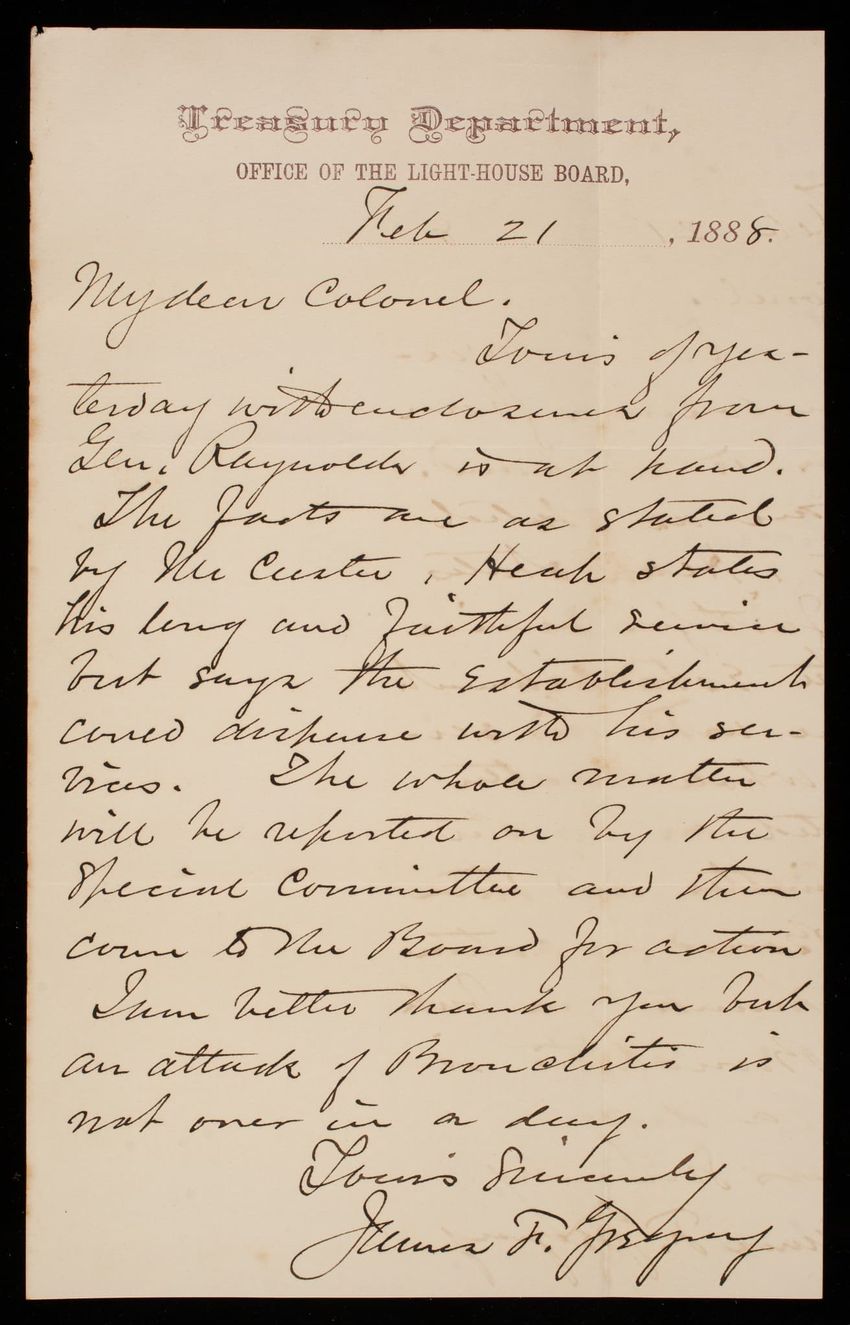 Treasury Department,
OFFICE OF THE LIGHT-HOUSE BOARD,
Feb 21, 1888.
My dear Colonel.
Yours of yes-
terday with enclosures from
Gen. Raynolds is at hand.
The facts are as stated
by Mr Custer, Heap states
his long and faithful service
but says the establishment
could dispense with his ser-
vices. The whole matter
will be reported on by the
Special Committee and then
come to the Board for action
I am better thank you but
an attack of Bronchitis is
not over in a day.
Yours Sincerely
James F. Gregory